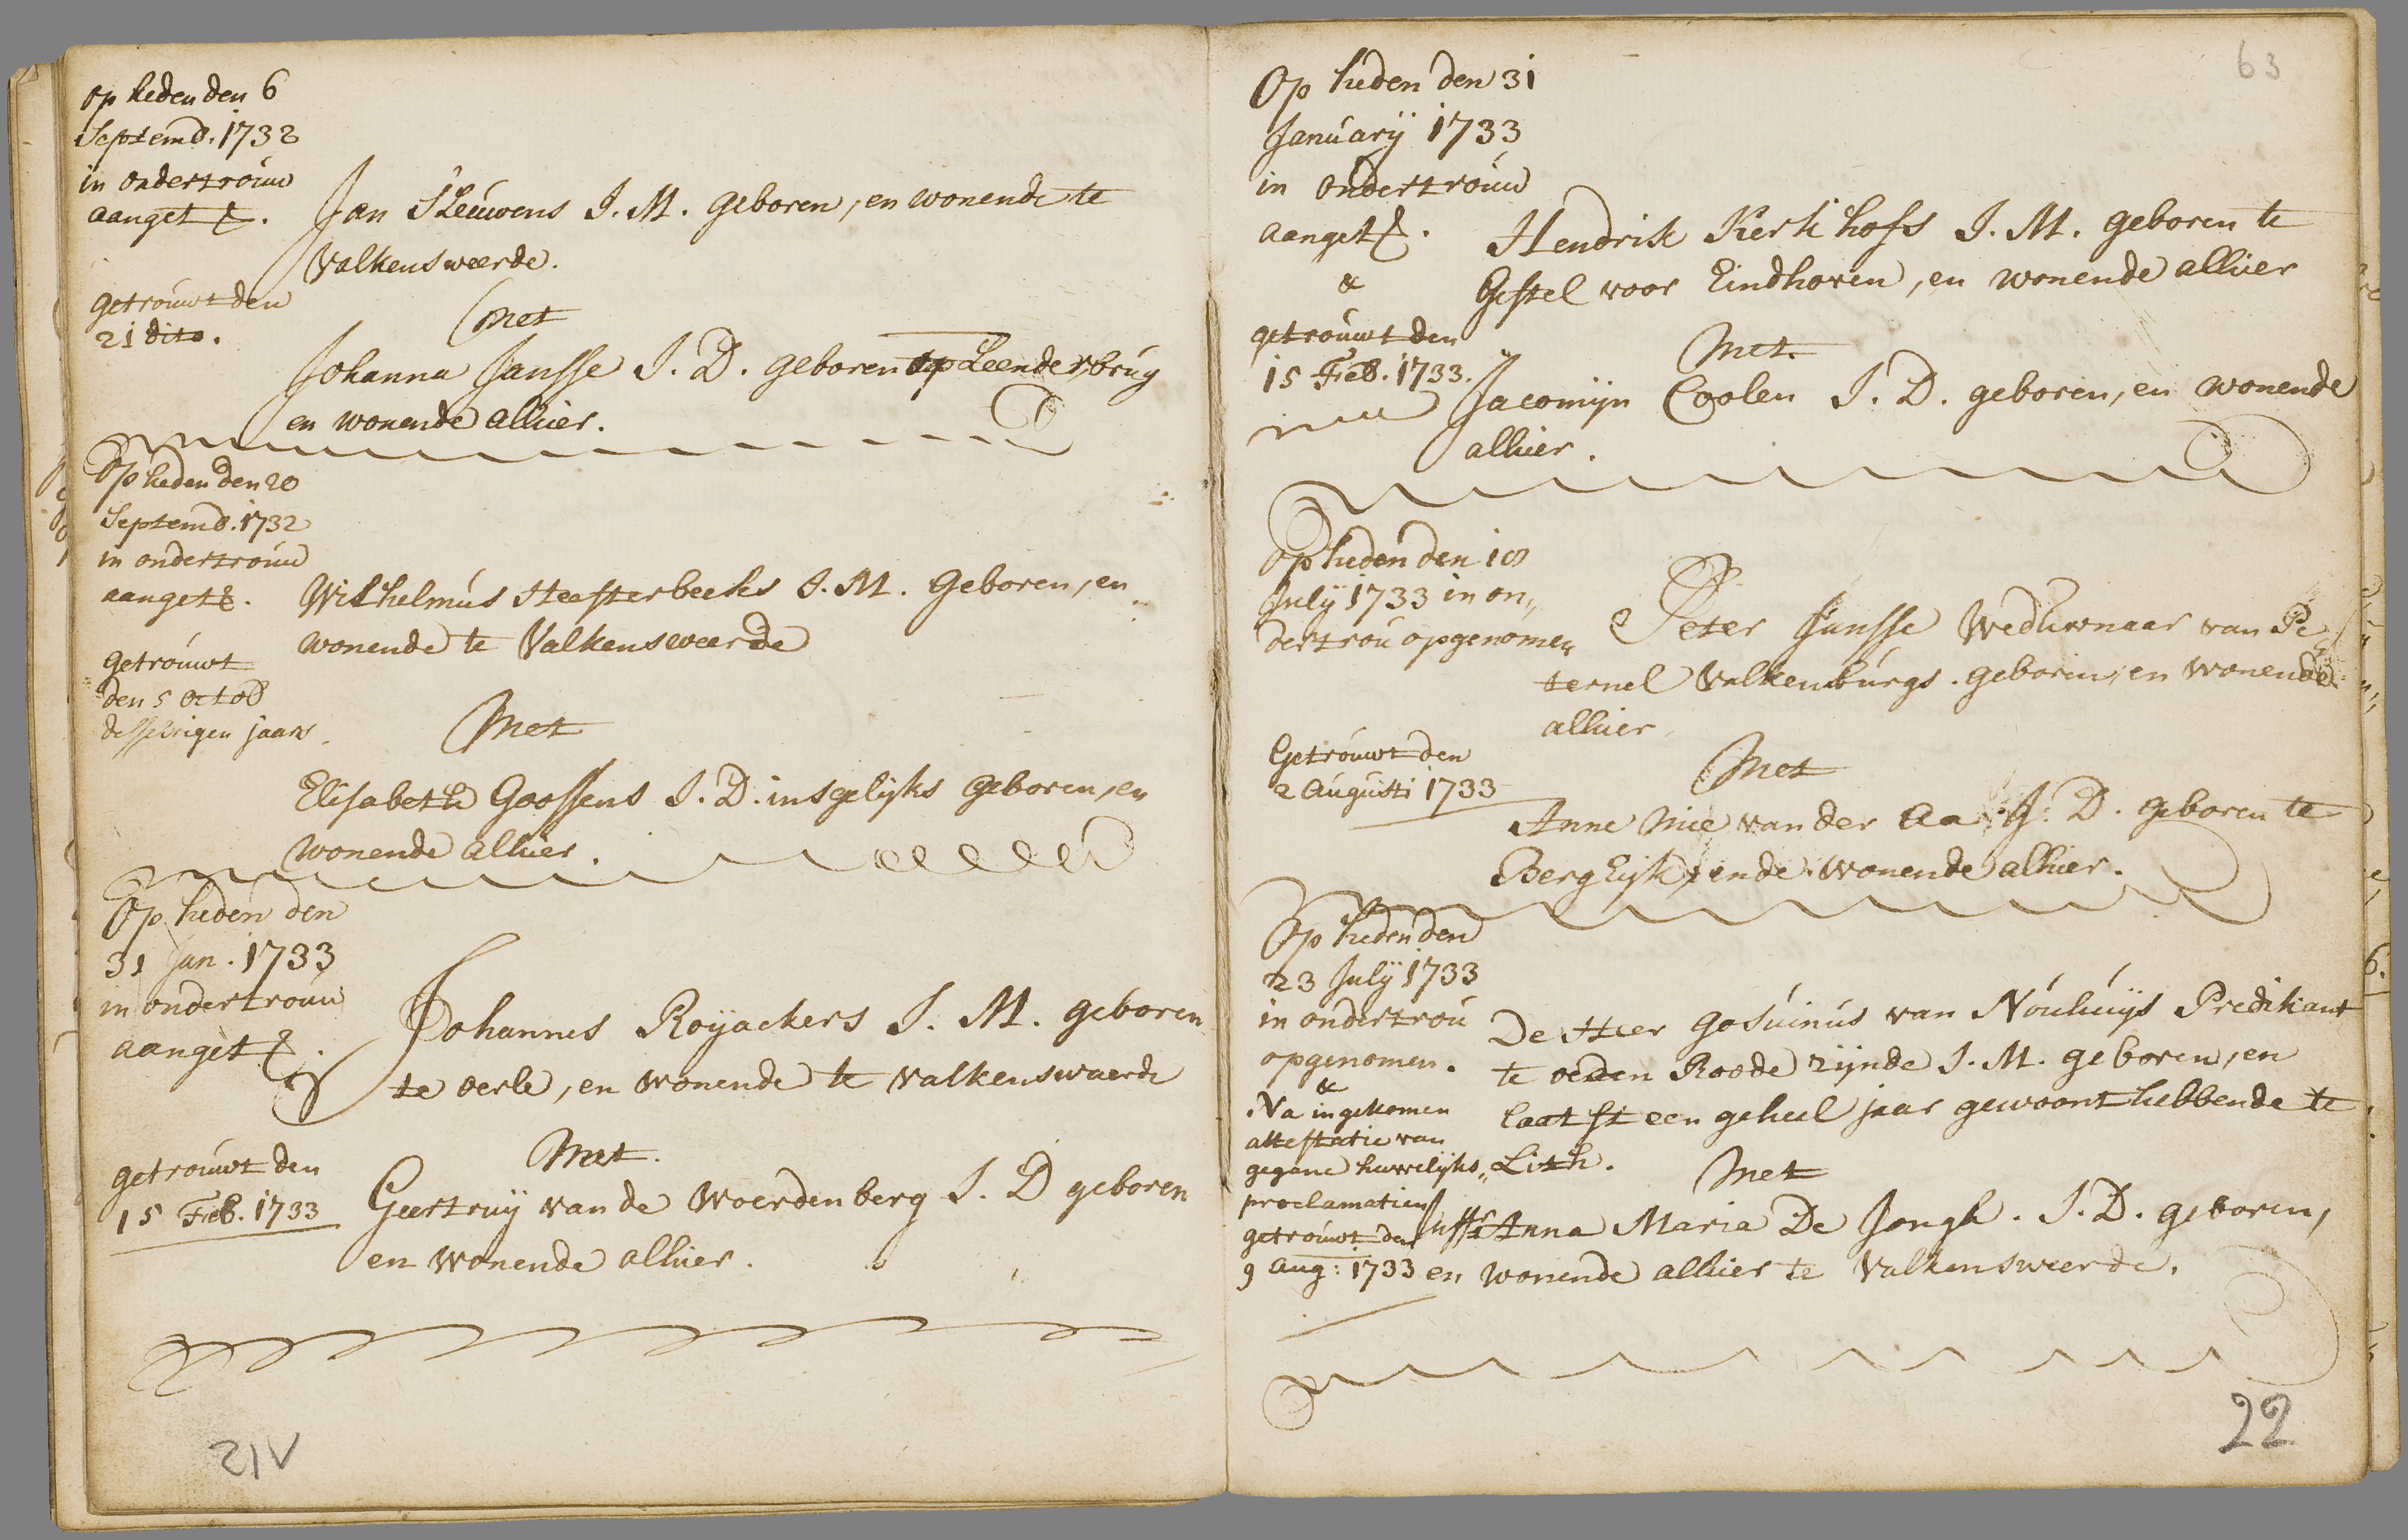 Op heden den 6
Septemb. 1732
in ondertrouw
aanget.
Jan S'Leeuwens J. M. geboren, en wonende te
Valkensweerde.
getrouwt den
21 dito.
met
Johanna Jansse J. D. geboren op Leenderbrug
en wonende alhier.
Op heden den 20
Septemb. 1732
in ondertrouw
aanget.
Wilhelmus Heesterbeeks J. M. Geboren, en
wonende te Valkensweerde
getrouwt
den 5 octob
desselvigen jaars
Met
Elisabeth Goossens J. D. insgelijks geboren, en
wonende alhier.
Op heden den
31 Jan. 1733
in ondertrouw
aanget.
Johannes Roÿackers J. M. geboren
te oerle, en wonende te valkenswaerde
Met.
getrouwt den
15 Feb. 1733
Geertruÿ van de Woerdenberg J. D geboren
en wonende alhier.
21V
63
Op heden den 31
Januarÿ 1733
in ondertrouw
aanget.
Hendrik Kerkhofs J. M. geboren te
&
Gestel voor Eindhoven, en wonende alhier
getrouwt den
15 Feb. 1733.
Met.
Jacomijn Coolen J. D. geboren, en wonende
alhier.
Op heden den 18
Julÿ 1733 in on,,
dertrou opgenomen
Peter Jansse Weduwnaar van Pe
ternel Valkenburgs. geboren, en wonende
alhier
Getrouwt den
2 Augusti 1733
Met
Anne Mie van der Aa J. D. geboren te
BergEijk, ende wonende alhier.
Op heden den
23 Julÿ 1733
in ondertrou
opgenomen.
De Heer Gosuinus van Nouhuÿs Predikant
te oeden Roode zijnde J. M. geboren, en
laatst een geheel jaar gewoont hebbende te
Lith.
&
Na ingekomen
attestatie van
gegane huwelijks,,
proclamatien
getrouwt den
9 Aug: 1733
Met
Juffr Anna Maria De Jongh. J. D. geboren,
en wonende alhier te Valkensweerde.
22